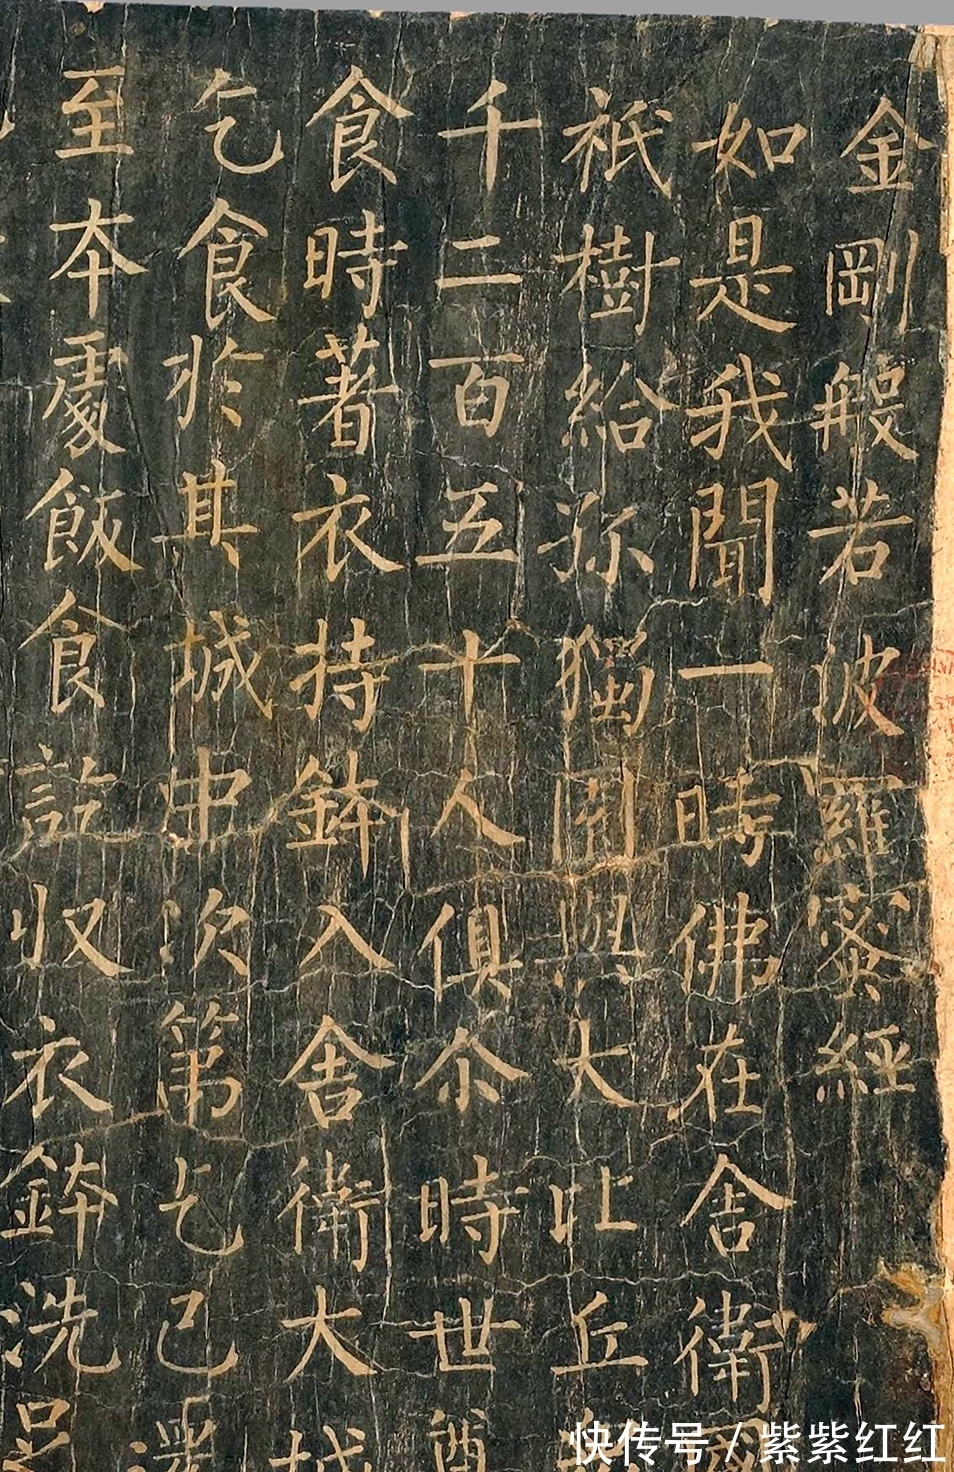 金剛般若波羅蜜經
如是我聞一時佛在舍衛
祇樹給孤獨園與大比丘
千二百五十人俱尒時世尊
食時著衣持鉢入舍衛大城
乞食於其城中次第乞已還
至本處飯食訖収衣鉢洗足
快传号 / 紫紫红红